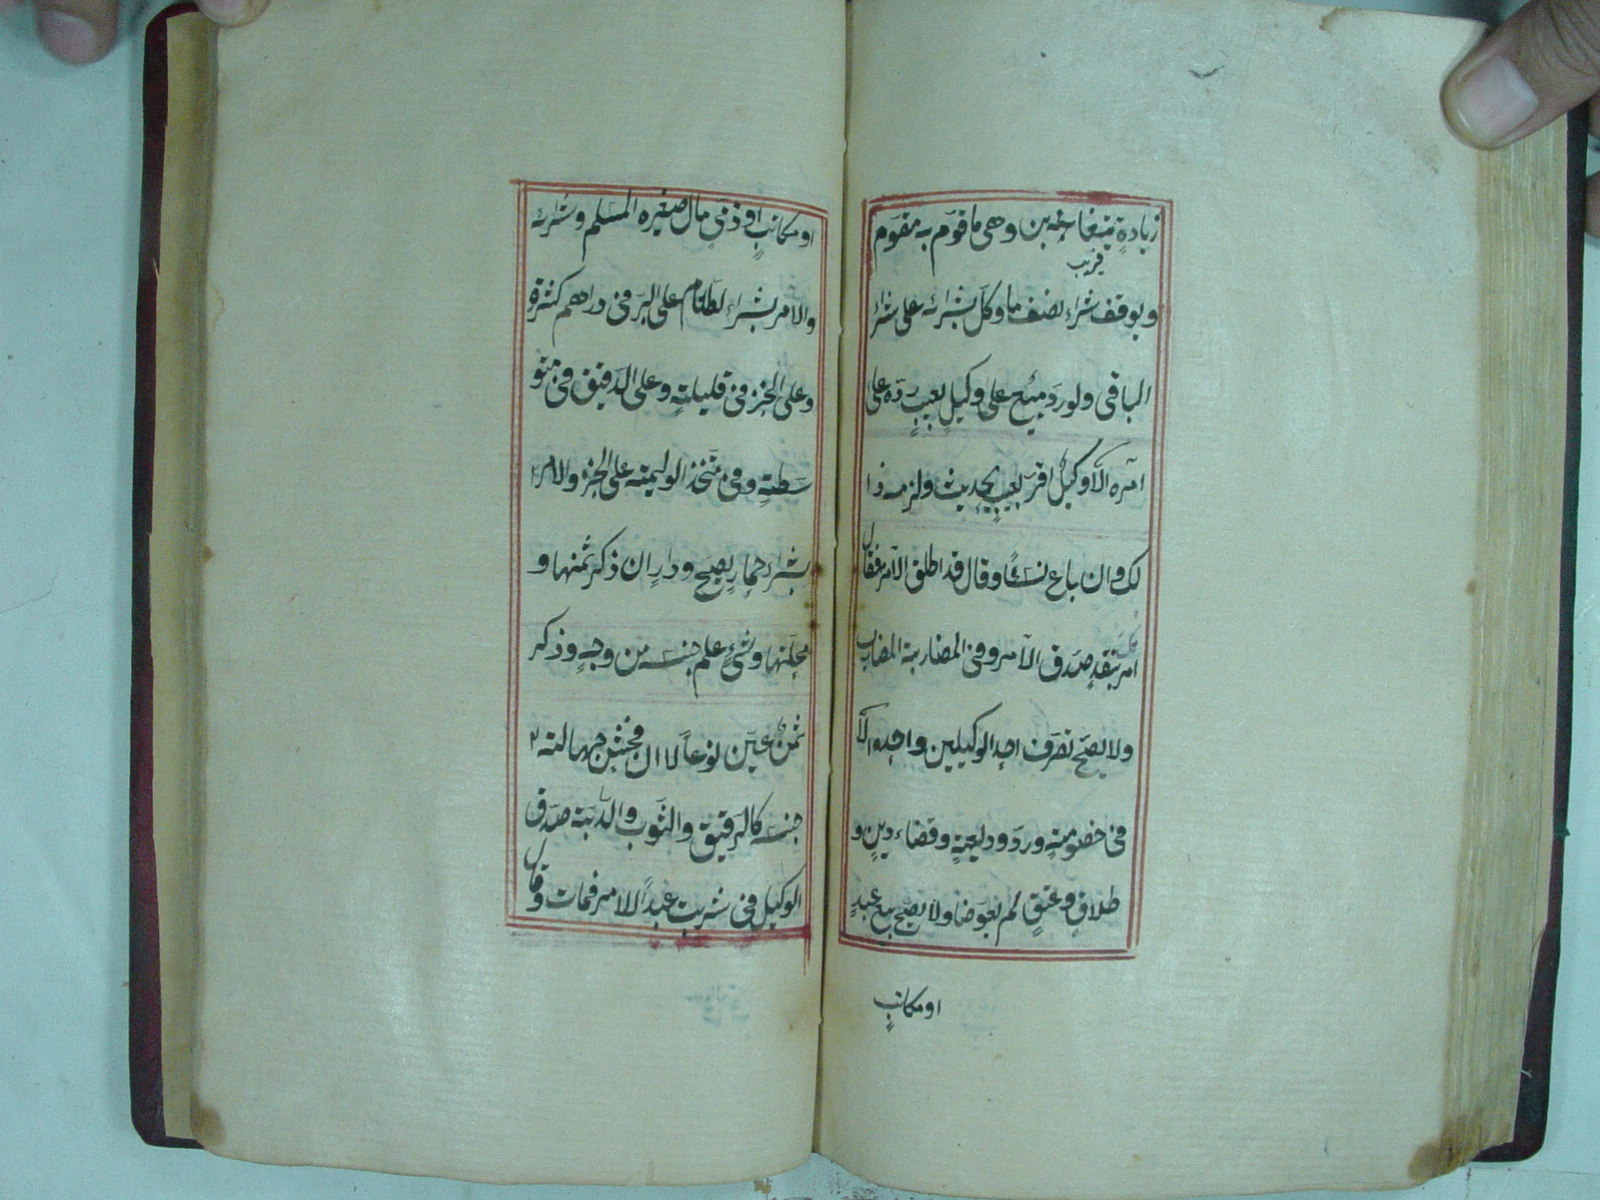 زيادةٍ يتغابن فيه بين وهي ما قوّم به مقوم
قريب
ويوقف شراء نصف ما وكّل بشرائه على شراء
الباقي ولو ردّ مبيع على وكيلٍ بعيبٍ ردّه على
آمره الّا وكيلٌ اقرّ بعيبٍ يحدث ولزمه ذا
لك وان باع نسأً وقال قد اطلق الآمر فقال
امرتك بنقدٍ صدّق الآمر وفي المضاربة المضارب
ولا يصحّ تصرّف احد الوكيلين واحده الّا
في خصومةٍ وردّ وديعةٍ وقضاء دينٍ و
طلاقٍ وعتقٍ لم يعوّضا ولا يصحّ بيع عبدٍ
او مكاتبٍ
او مكاتبٍ او ذمّيٍ مال صغيره المسلم وشراؤه
والامر بشراء الطعام على البرّ في دراهم كثيرة
وعلى الخبز في قليلةٍ وعلى الدقيق في متو
سطةٍ وفي متّخذ الوليمة على الخبز والامر
بشراء حمارٍ يصحّ ودارٍ ان ذكر ثمنها و
محلّتها وشيءٍ علم جنسه من وجهٍ وذكر
ثمنٌ عيّن نوعاً لا ان فحش جهالة
جنسه كالرقيق والثوب والدابّة صدّق
الوكيل في شريت عبداً للآمر فمات وقال